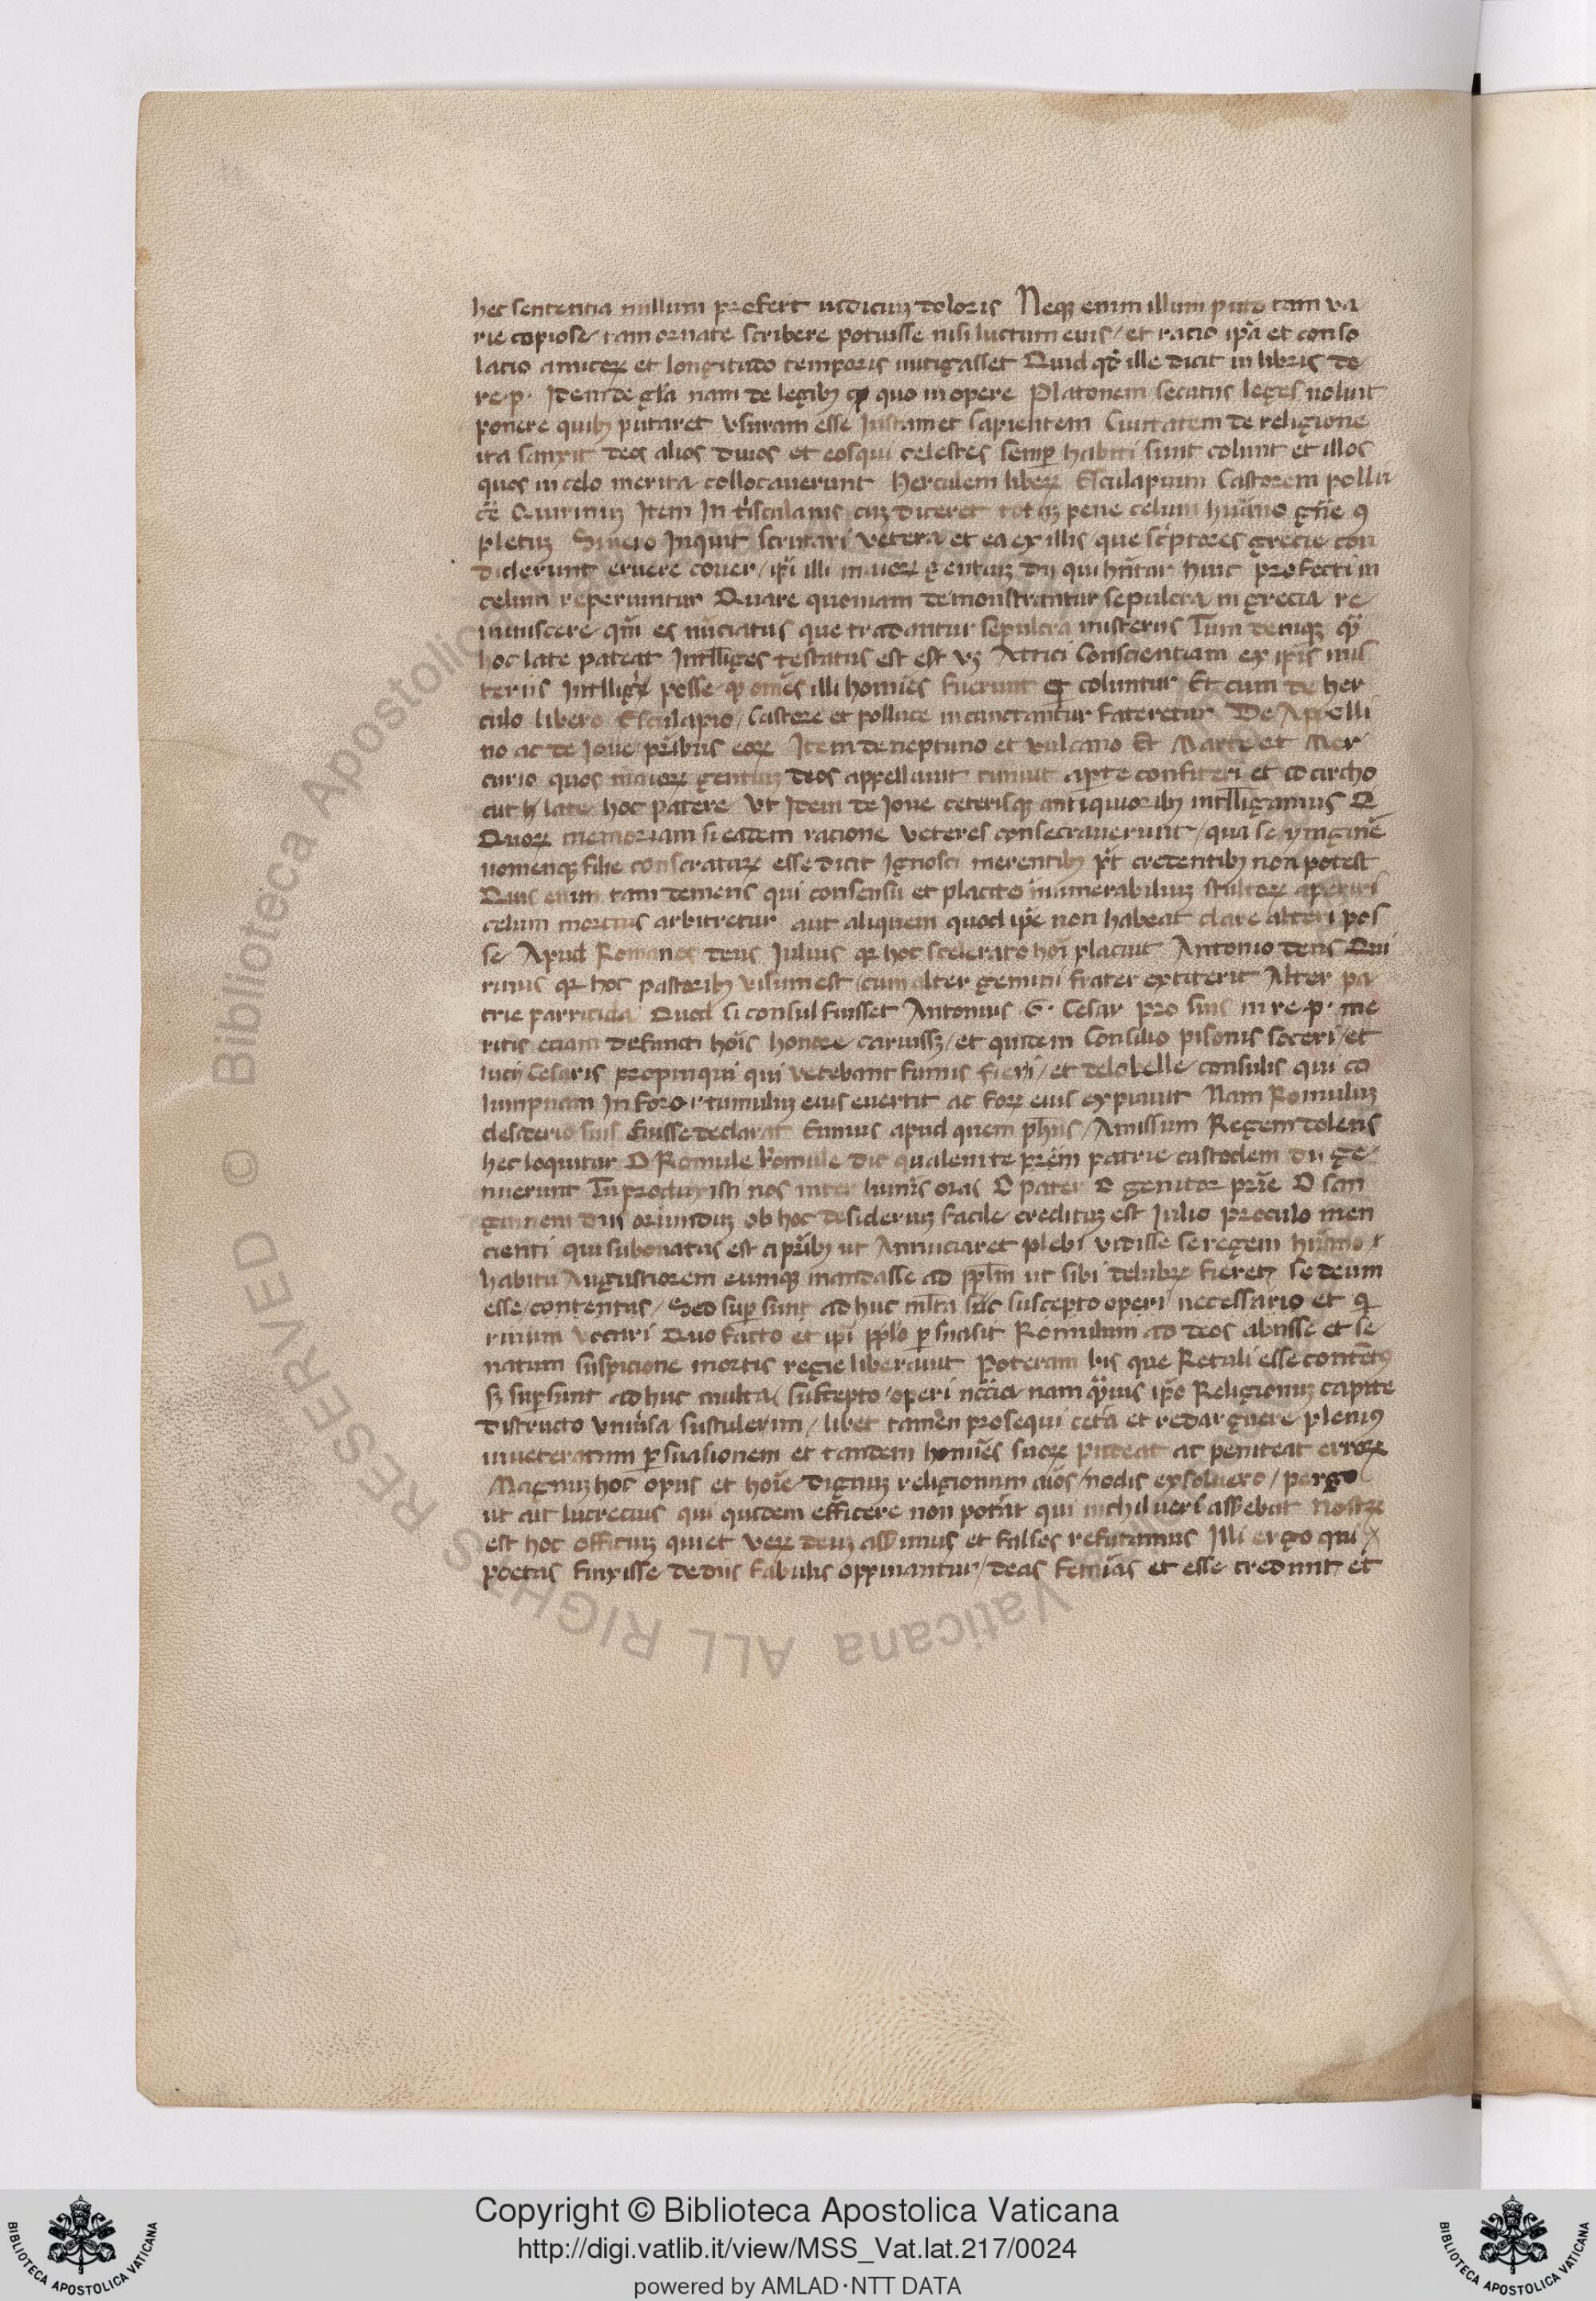 hec sententia nullum prefert iudiciuꝫ doloris Neqꝫ enim illum puto tam va
rie copiose / tam ornate scribere potuisse nisi luctum eius / et racio ip̄a et conso
latio amicoꝝ et longitudo temporis mitigasset Quid qd̓ ille dicit in libris de
re · p · Idem de gl̄a nam de legibꝫ quo in opere Platonem secutus leges voluit
ponere quibꝫ putaret vsuram esse Iustam et sapientem Ciuitatem de religione
ita sanxit deos alios diuos et eos qui celestes semꝑ habiti sunt colunt et illos
quos in celo merita collocauerunt Herculem liberꝝ Esculapium Castorem pollu
cē Quirinuꝫ Item In tusculanis cuꝫ diceret totuꝫ pene celum humāo gn̄e ꝯ
pletuꝫ Si vero Inquit scrutari vetera et ea ex illis / que sc̓ptores grecie con
diderunt eruere coner / ip̄i illi maioꝝ gentiuꝫ dij qui hn̄tur hinc profecti in
celum reperiuntur Quare quoniam demonstrantur sepulcra in grecia re
miniscere qm̄ es nūciatus que tradantur sepulcra misteriis Tum deniqꝫ qͣ̄
hoc late pateat Intlliges testatus est est vꝫ Attici Conscientiam ex ip̄is mis
teriis Intlligi posse ꝙ om̄es illi homīes fuerunt coluntur Et cum de her
culo libero Esculapio / Castore et polluce incunctantur fateretur De Appolli
no ac de Ioue / pr̄ibus eoꝝ Item de neptuno et vulcano Et Marte et Mer
curio quos maioꝝ gentiuꝫ deos appellauit timuit aꝑte confiteri et idcircho
aut h late hoc patere Vt Idem de Ioue ceterisqꝫ antiquioribꝫ intlligamus Q
Quoꝝ memoriam si eadem racione veteres consecrauerunt / qua se ymginē
nomenqꝫ filie consecraturꝝ esse dicit Ignosci merentibꝫ pt̄ credentibꝫ non potest
Quis enim tam demens qui consensu et placito inumerabiliuꝫ stultoꝝ aperiri
celum mortuis arbitretur aut aliquem quod ip̄e non habeat dare alteri pos
se Apud Romanos deus Iulius qꝛ hoc scelerato hoī placuit Antonio deus Qui
rinus qꝛ hoc pastoribꝫ visum est cum alter gemini frater extiterit Alter pa
trie parricida Quod si consul fuisset Antonius G · Cesar pro suis in re · p · me
ritis eciam defuncti hoīs honore caruissꝫ / et quidem Consilio pisonis soceri / et
lucij Cesaris propinqui qui vetebant funus fieri / et delobelle / consulis qui co
lumpnam In foro / tumuluꝫ eius euertit ac forꝝ eius expiauit Nam Romuluꝫ
desiderio suis fuisse declarat Ennius apud quem ph̄us / Amissum Regem dolens
hec loquitur O Romule Romule dic qualem te prēm patrie custodem dii ge
nuerunt Tu produxisti nos inter lumīs oras O pater O genitor pr̄ie O san
guinem diis oriunduꝫ ob hoc desideriuꝫ facile / credituꝫ est Iulio proculo men
cienti qui subornatus est a pr̄ibꝫ ut Annuciaret plebi vidisse se regem humāo
habitu Augustiorem eumqꝫ mandasse ad pp̄lm ut sibi delubꝝ fieret / se deum
esse / contentus / Sed suꝑ sunt ad huc ml̄ta suscepto operi necessario et q̓
rinum vocari Quo facto et ip̄i pp̄lo ꝑsuasit Romulum ad deos abiisse et se
natum suspicione mortis regie liberauit Poteram his que Retuli esse contētꝰ
sꝫ suꝑsunt ad huc multa / suscepto / operi nccīa / nam qͣ̄uis ip̄o Religionuꝫ capite
distructo vniūsa sustulerim / libet tamen prosequi cetā et redarguere plenius
inueteratum ꝑsuasionem et tandem homīes suoꝝ pudeat ac peniteat erroꝝ
Magnuꝫ hoc opus et hoīe dignuꝫ religionum aīos / nodis exsoluere / pergo
ut ait lucrecius qui quidem efficere non potāt qui nichil veri aff̄ebat nostrꝝ
est hoc officiuꝫ qui et verꝝ deuꝫ assimus et falsos refutamus Illi ergo qui
poetas finxisse de diis fabulis oppinantur / deas femīas et esse credunt et
Copyright © Biblioteca Apostolica Vaticana
http://digi.vatlib.it/view/MSS_Vat.lat.217/0024
powered by AMLAD·NTT DATA